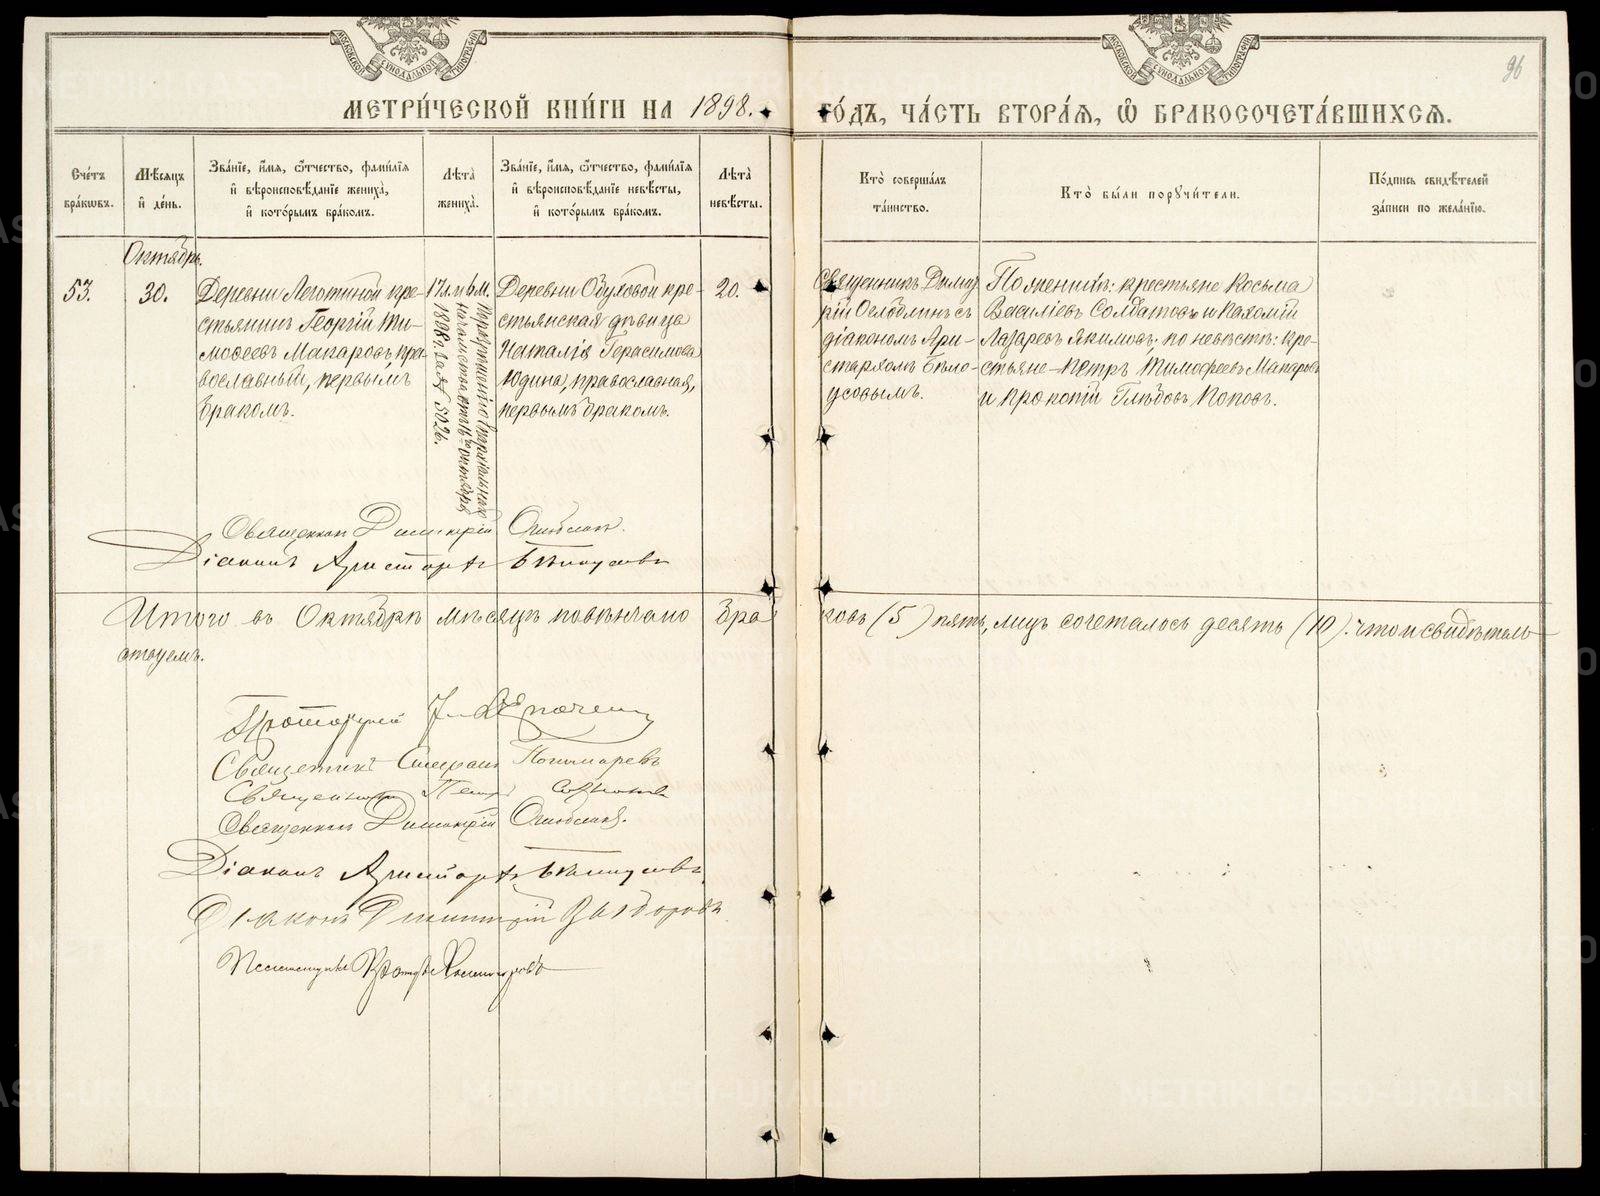 МОСКОВСКОЙ СУНОДАЛЬНОЙ ТИПОГРАФІИ
МОСКОВСКОЙ СУНОДАЛЬНОЙ ТИПОГРАФІИ
96
МЕТРИ́ЧЕСКОЙ КНИ́ГИ НА 1898.
ГО́ДЪ, ЧА́СТЬ ВТОРА́Ѧ, Ѽ БРАКОСОЧЕТА́ВШИХСѦ.
Сче́тъ
бра́кѡвъ.
Мѣ́сѧцъ
и҆ де́нь.
Зва́нїе, и҆́мѧ, ѻ҆́тчество, фами́лїѧ
и҆ вѣроисповѣ́данїе жениха̀,
и҆ кото́рымъ бра́комъ.
Лѣ́та
жениха̀.
Зва́нїе, и҆́мѧ, ѻ҆́тчество, фами́лїѧ
и҆ вѣроисповѣ́данїе невѣ́сты,
и҆ кото́рымъ бра́комъ.
Лѣ́та
невѣ́сты.
Кто̀ соверша́лъ
та́инство.
Кто̀ бы́ли порꙋчи́тели.
По́дпись свидѣ́телей
за́писи по жела́нїю.
Октябрь.
53.
30.
Деревни Леготиной кре-
стьянинъ Георгій Ти-
мофеевъ Макаровъ, пра-
вославный, первымъ
бракомъ.
17 л. и 6 м.
По разрѣшенію Епархіальнаго
начальства отъ октября
1898 г. за № 5926.
Деревни Обуховой кре-
стьянская дѣвица
Наталія Герасимова
Юдина, православная,
первымъ бракомъ.
20.
Священникъ Дими-
трій Оглоблинъ съ
діакономъ Ари-
стархомъ Бѣло-
усовымъ.
По женихѣ: крестьяне Косьма
Василіевъ Солдатовъ и Пахомій
Лазаревъ Якимовъ; по невѣстѣ: кре-
стьяне Петръ Тимофеевъ Макаровъ
и Прокопій Глѣбовъ Поповъ.
Священникъ Димитрій Оглоблинъ.
Діаконъ Аристархъ Бѣлоусовъ
Итого въ Октябрѣ мѣсяцѣ повѣнчано бра
ковъ (5) пять, лицъ сочеталось десять (10). что и свидѣтель-
ствуемъ.
Протоіерей
Священникъ Пономаревъ
Священникъ Петръ
Священникъ Димитрій Оглоблинъ.
Діаконъ Аристархъ Бѣлоусовъ.
Діаконъ Димитрій
Псаломщикъ
METRIKI.GASO-URAL.RU